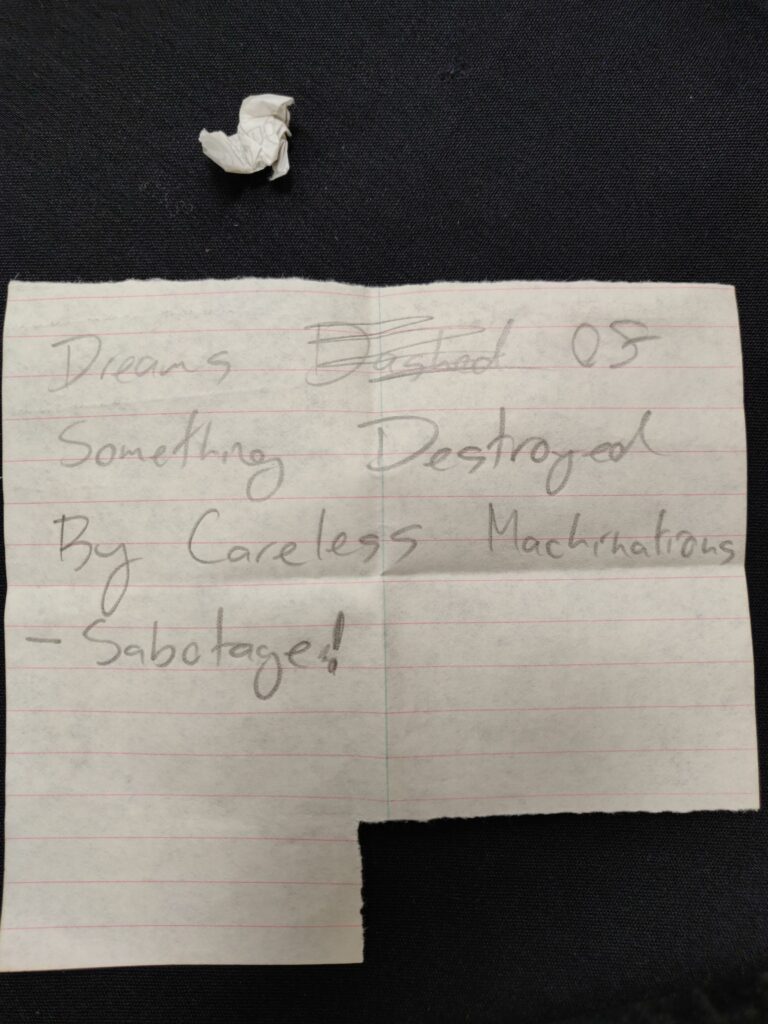 Dreams Dashed Of
Something Destroyed
By Careless Machinations
- Sabotage!